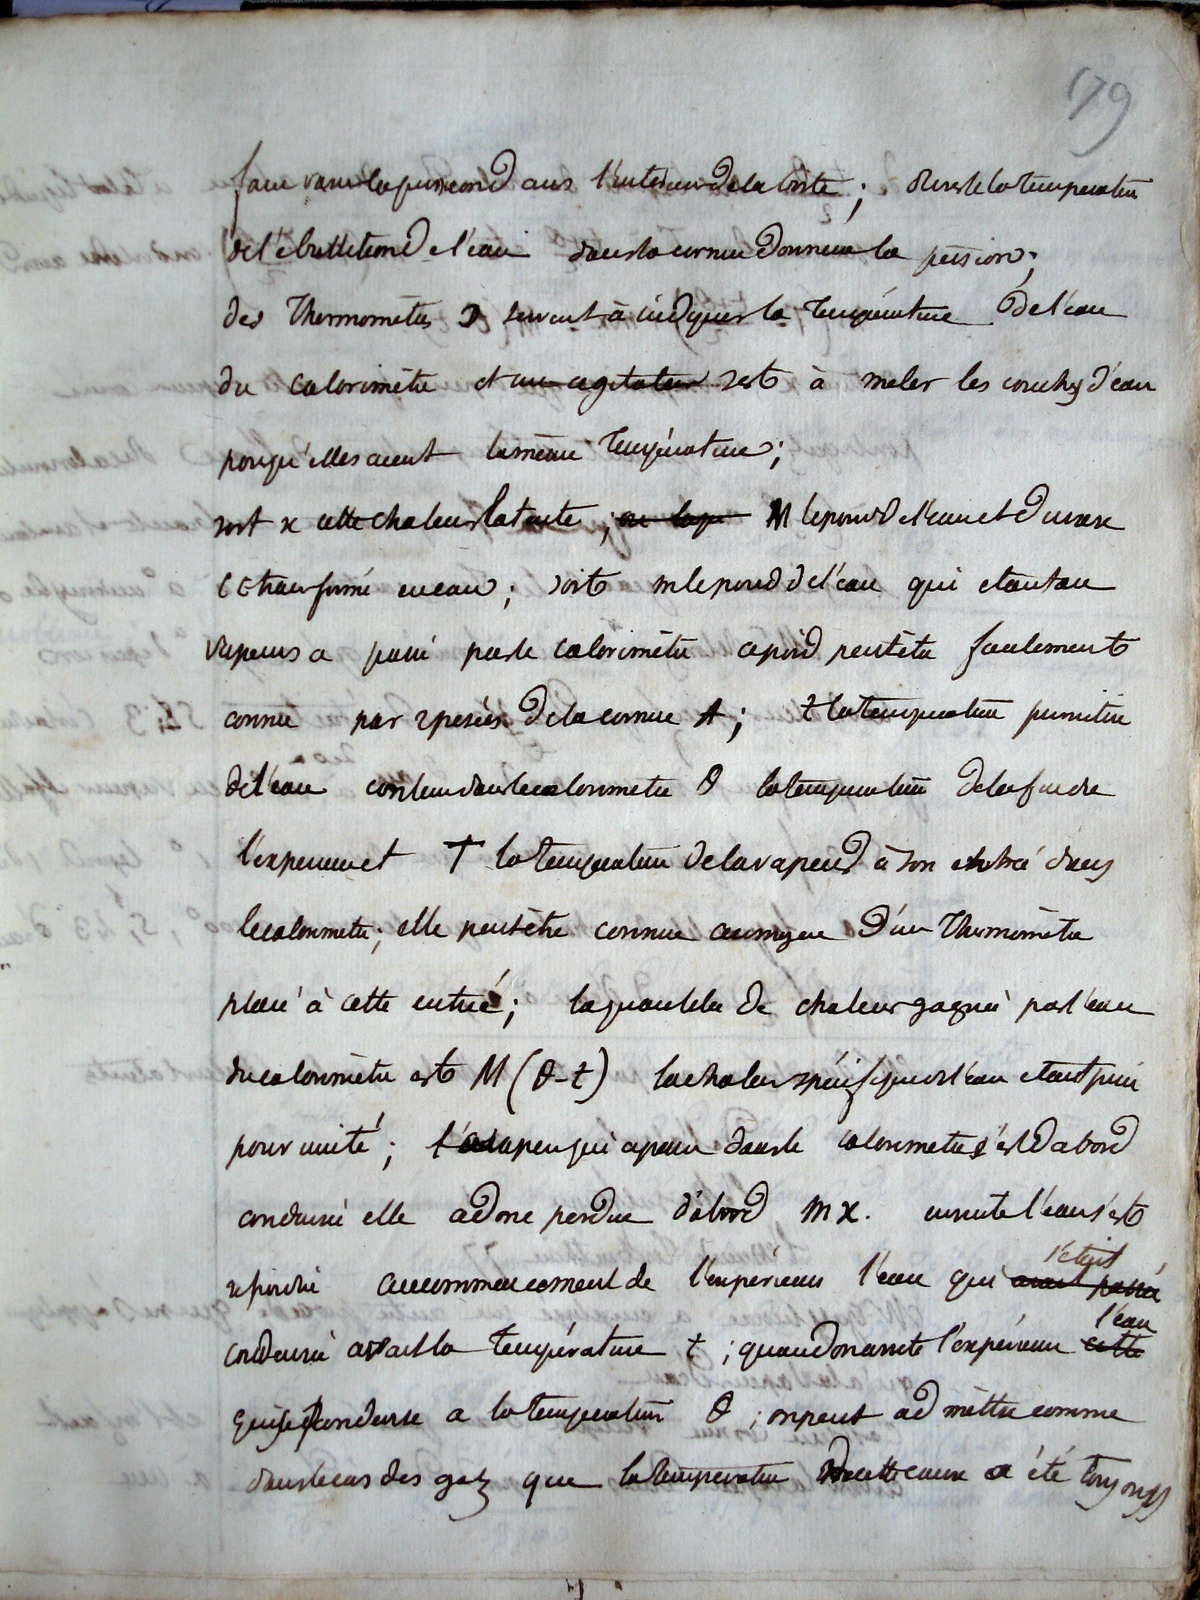 179
faire varier la pression dans l'interieur de la boite; ensuite la temperature
de l'ebullition de l'eau dans la cornue donnera la pression;
des Thermomètres servent à indiquer la Température de l'eau
du calorimètre et un agitateur sert à meler les couches d'eau
pour qu'elles aient la même Température;
soit x cette chaleur latente; M le poid de l'eau et du vase
transformé en eau; soit m le poid de l'eau qui etant en
vapeurs a passé par le calorimètre ce poid peut etre facilement
connu par 2 pesées de la cornue A; t la température primitive
de l'eau contenu dans le calorimetre θ la temperature de la fin de
l'experience et T la température de la vapeur à son entrée dans
le calorimetre; elle peut être connue au moyen d'un Thermomètre
placé à cette entrée; la quantité de chaleur gagnée par l'eau
du calorimètre est M (θ-t) la chaleur spécifique de l'eau etant prise
pour unité; la vapeur qui a passé dans le calorimetre s'est d'abord
condensée elle a donc perdue d'abord mx. ensuite l'eau s'est
refroidie au commencement de l'expérience l'eau qui avait passé
l'etait
condensée avait la Température t; quand on arrete l'expérience cette
l'eau
qui se condense a la temperature θ; on peut admettre comme
dans le cas des gaz que la temperature de cette eau a été toujours